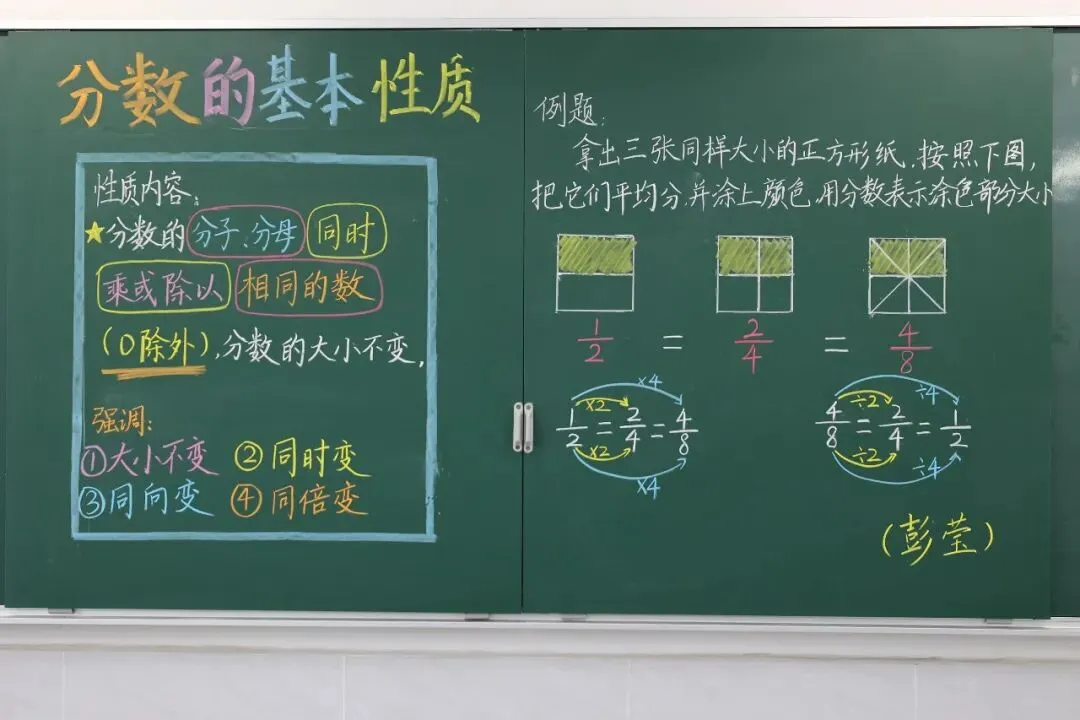 分数的基本性质
性质内容:
★分数的分子、分母同时
乘或除以相同的数
(0除外),分数的大小不变.
强调:
①大小不变 ②同时变
③同向变 ④同倍变
例题:
拿出三张同样大小的正方形纸.按照下图,
把它们平均分.并涂上颜色.用分数表示涂色部分大小
1/2 = 2/4 = 4/8
×4
×2
1/2 = 2/4 = 4/8
×2
×4
÷4
÷2
4/8 = 2/4 = 1/2
÷2
÷4
(彭莹)